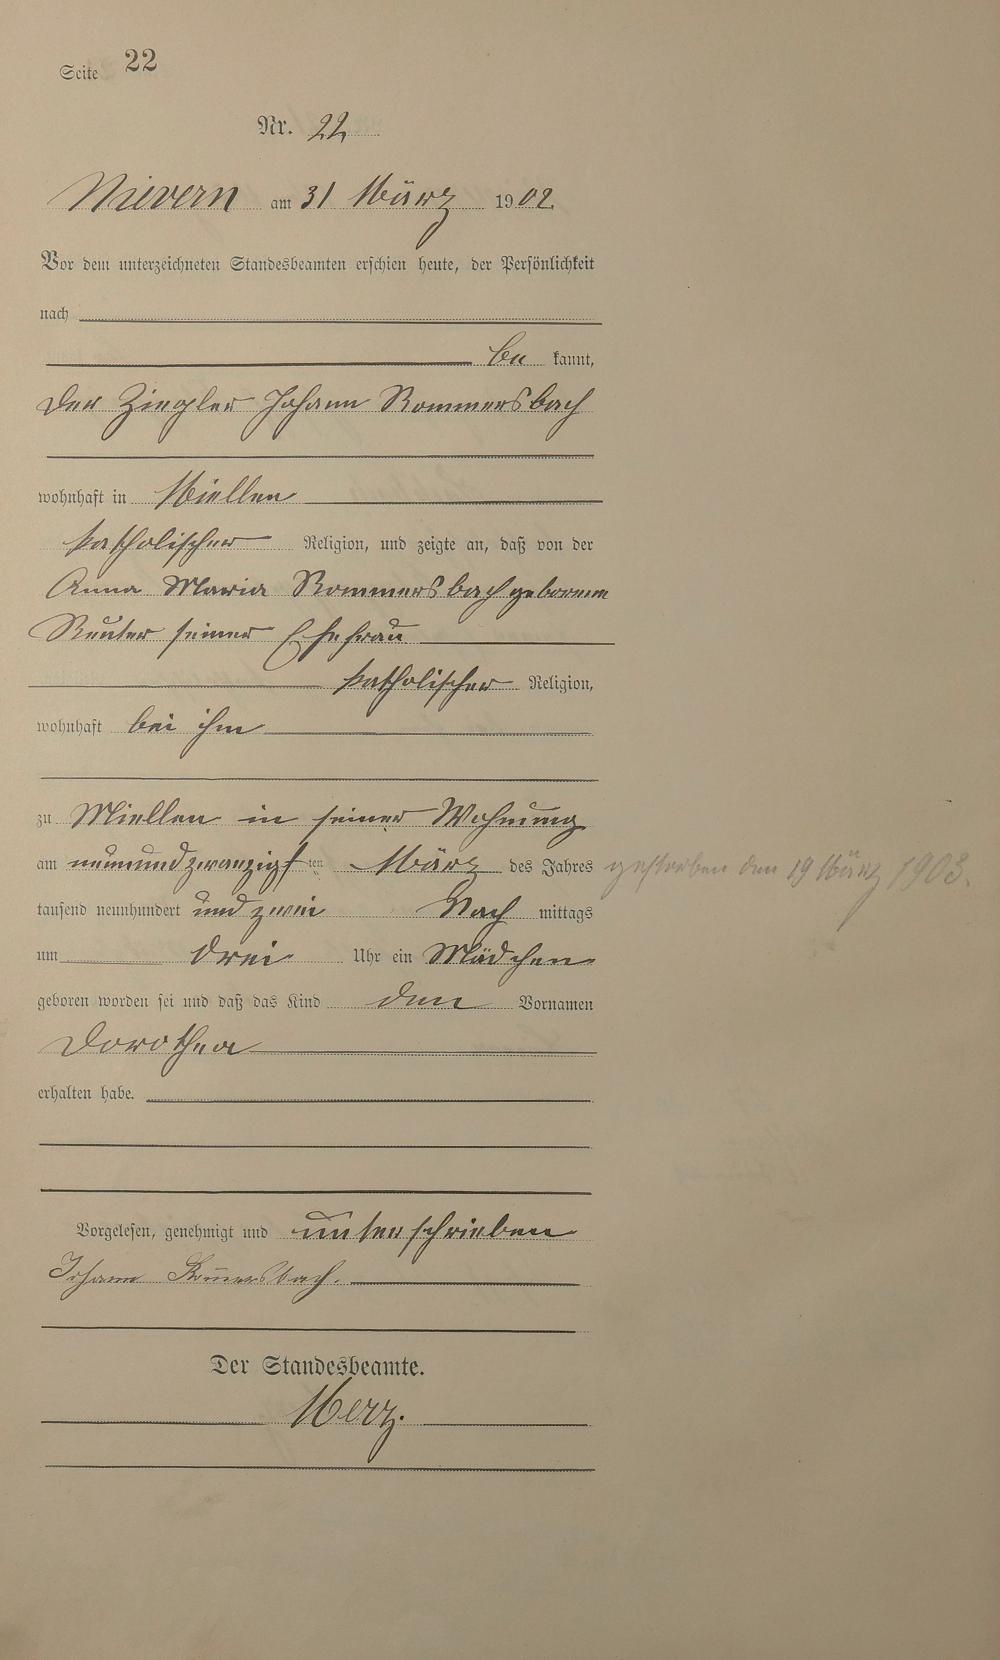 Seite 22
Nr. 22
Nievern am 31 März 1902.
Vor dem unterzeichneten Standesbeamten erschien heute, der Persönlichkeit
nach
be kannt,
der Ziegler Johann Rommersbach
wohnhaft in Miellen
katholischer Religion, und zeigte an, daß von der
Anna Maria Rommersbach geborenen
Reuter seiner Ehefrau
katholischer Religion,
wohnhaft bei ihm
zu Miellen in seiner Wohnung
am neunundzwanzigsten März des Jahres
tausend neunhundert und zwei Nach mittags
um drei Uhr ein Mädchen
geboren worden sei und daß das Kind den Vornamen
Dorothea
erhalten habe.
gestorben den 19 März 1903.
Vorgelesen, genehmigt und unterschrieben
Johann Rommersbach.
Der Standesbeamte.
Merz.